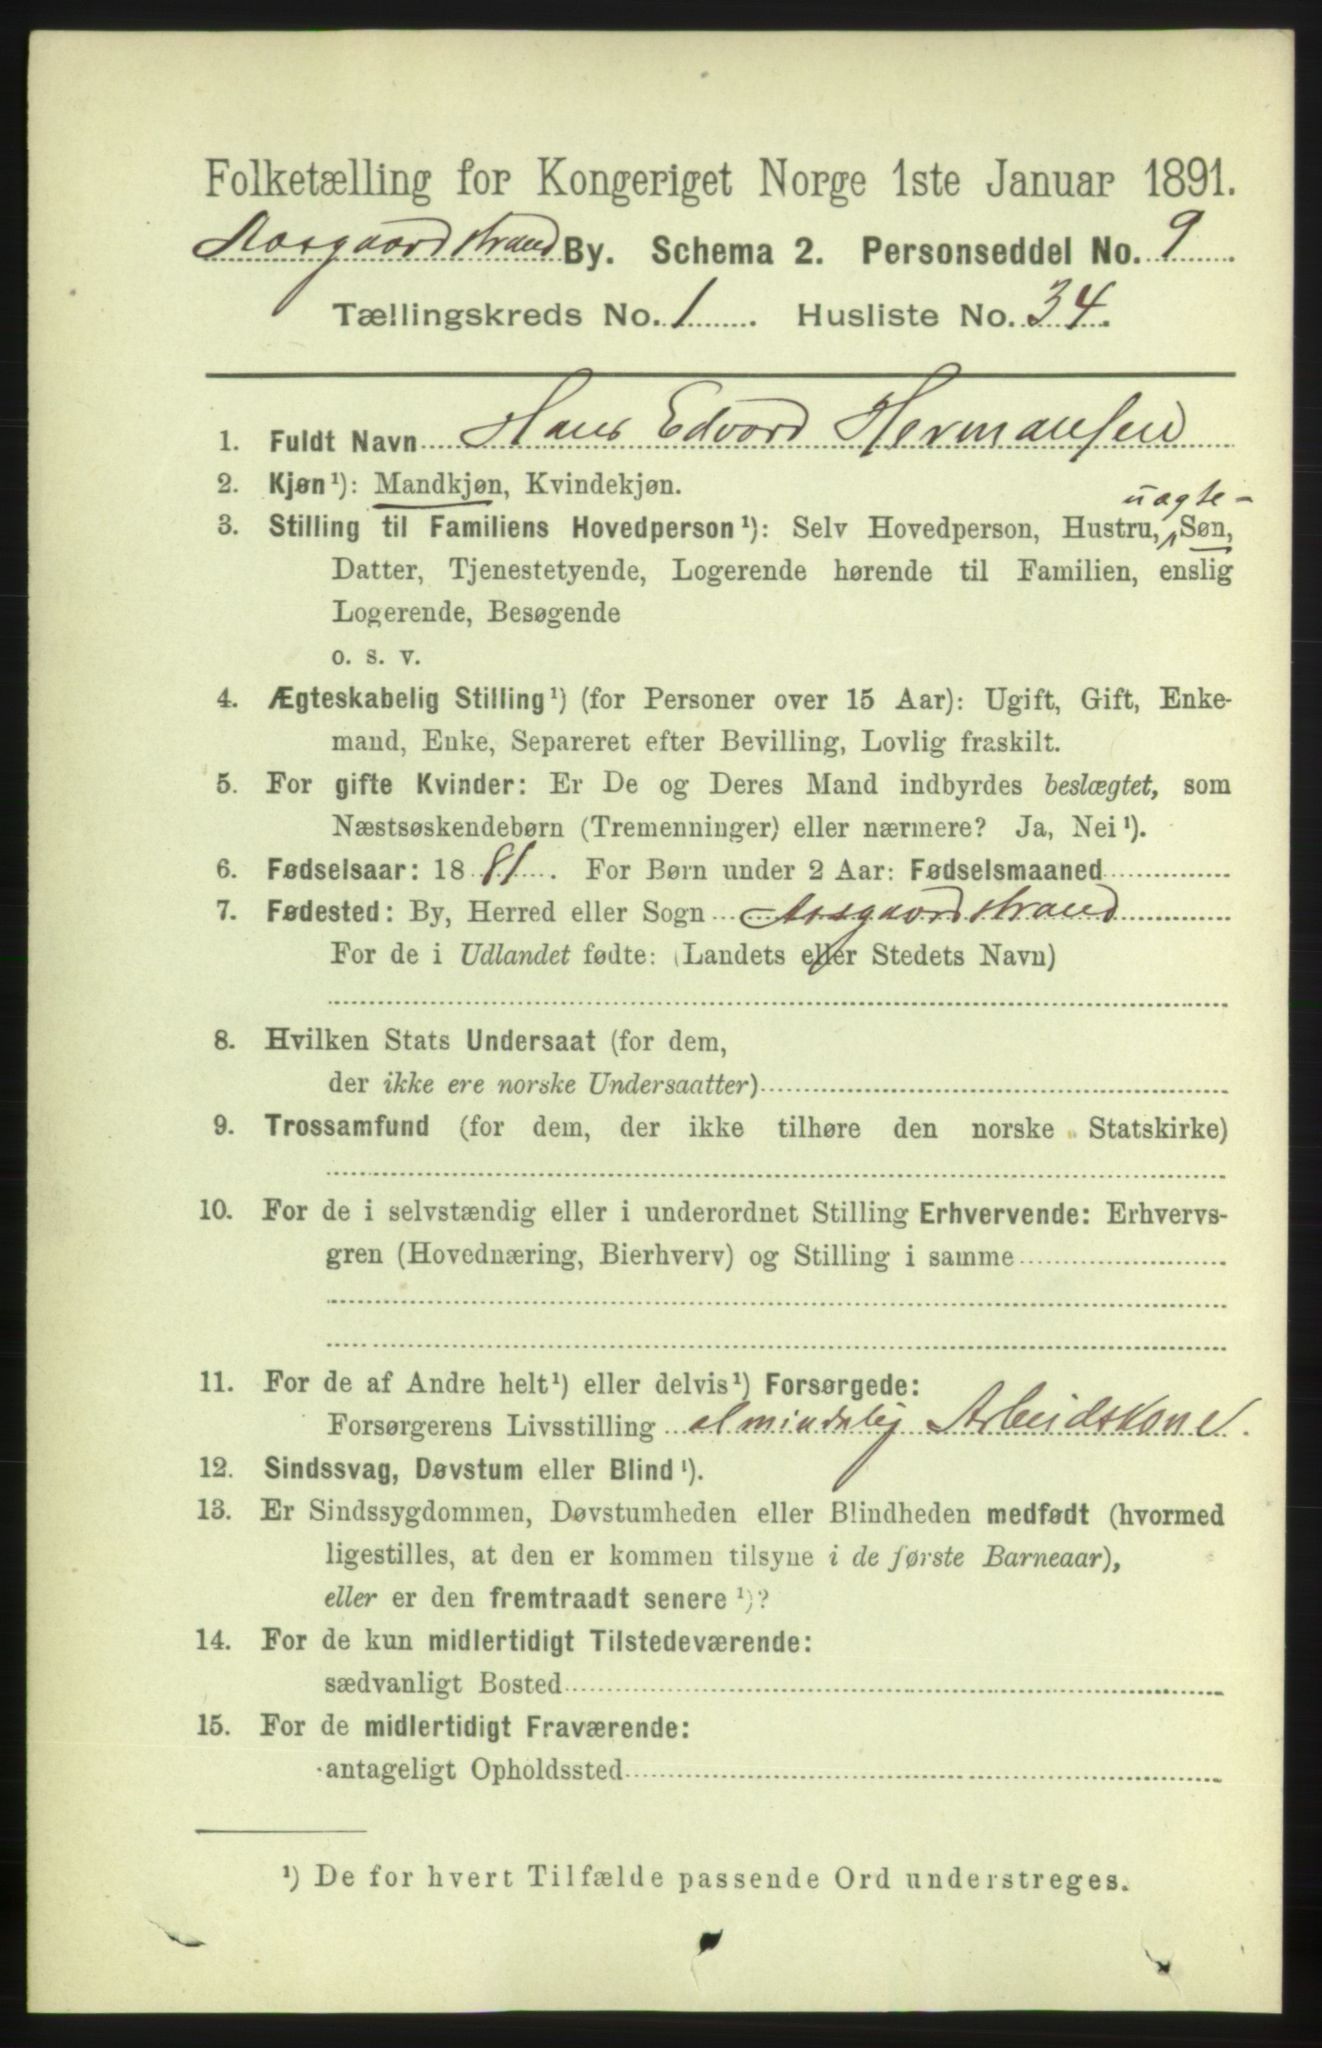 Folketælling for Kongeriget Norge 1ste Januar 1891.
Aasgaardstrand By. Schema 2. Personseddel No. 9
Tællingskreds No. 1 Husliste No. 34.
1. Fuldt Navn Hans Edvard Hermansen
2. Kjøn¹): Mandkjøn, Kvindekjøn.
uægte -
3. Stilling til Familiens Hovedperson¹): Selv Hovedperson, Hustru, Søn,
Datter, Tjenestetyende, Logerende hørende til Familien, enslig
Logerende, Besøgende
o. s. v.
4. Ægteskabelig Stilling¹) (for Personer over 15 Aar): Ugift, Gift, Enke-
mand, Enke, Separeret efter Bevilling, Lovlig fraskilt.
5. For gifte Kvinder: Er De og Deres Mand indbyrdes beslægtet, som
Næstsøskendebørn (Tremenninger) eller nærmere? Ja, Nei¹).
6. Fødselsaar: 1881. For Børn under 2 Aar: Fødselsmaaned
7. Fødested: By, Herred eller Sogn Aasgaardstrand
For de i Udlandet fødte: (Landets eller Stedets Navn)
8. Hvilken Stats Undersaat (for dem,
der ikke ere norske Undersaatter)
9. Trossamfund (for dem, der ikke tilhøre den norske Statskirke)
10. For de i selvstændig eller i underordnet Stilling Erhvervende: Erhvervs-
gren (Hovednæring, Bierhverv) og Stilling i samme
11. For de af Andre helt¹) eller delvis¹) Forsørgede:
Forsørgerens Livsstilling almindelig Arbeidskone.
12. Sindssvag, Døvstum eller Blind¹).
13. Er Sindssygdommen, Døvstumheden eller Blindheden medfødt (hvormed
ligestilles, at den er kommen tilsyne i de første Barneaar),
eller er den fremtraadt senere¹)?
14. For de kun midlertidigt Tilstedeværende:
sædvanligt Bosted
15. For de midlertidigt Fraværende:
antageligt Opholdssted
¹) De for hvert Tilfælde passende Ord understreges.